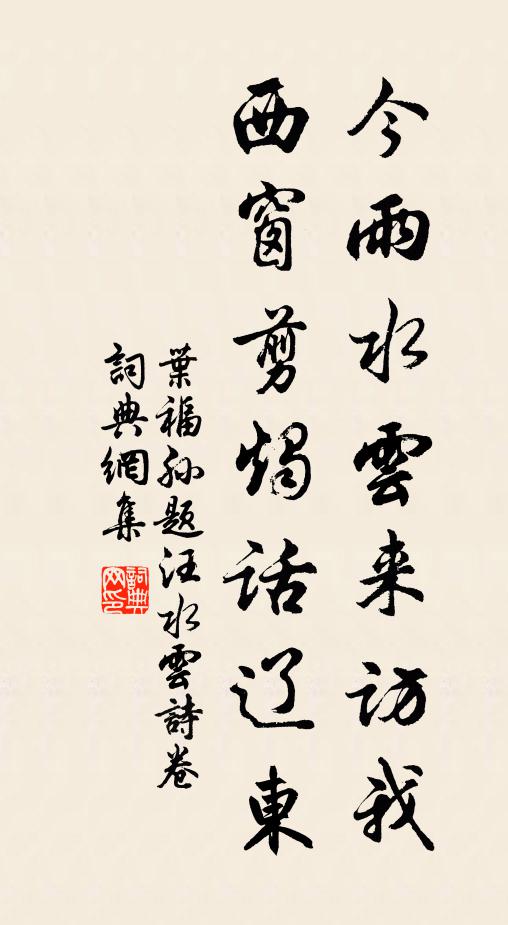 今雨水雲来訪我
西窗剪燭話辽東
葉福孙題汪水雲詩卷
詞典網集
詞典
网印